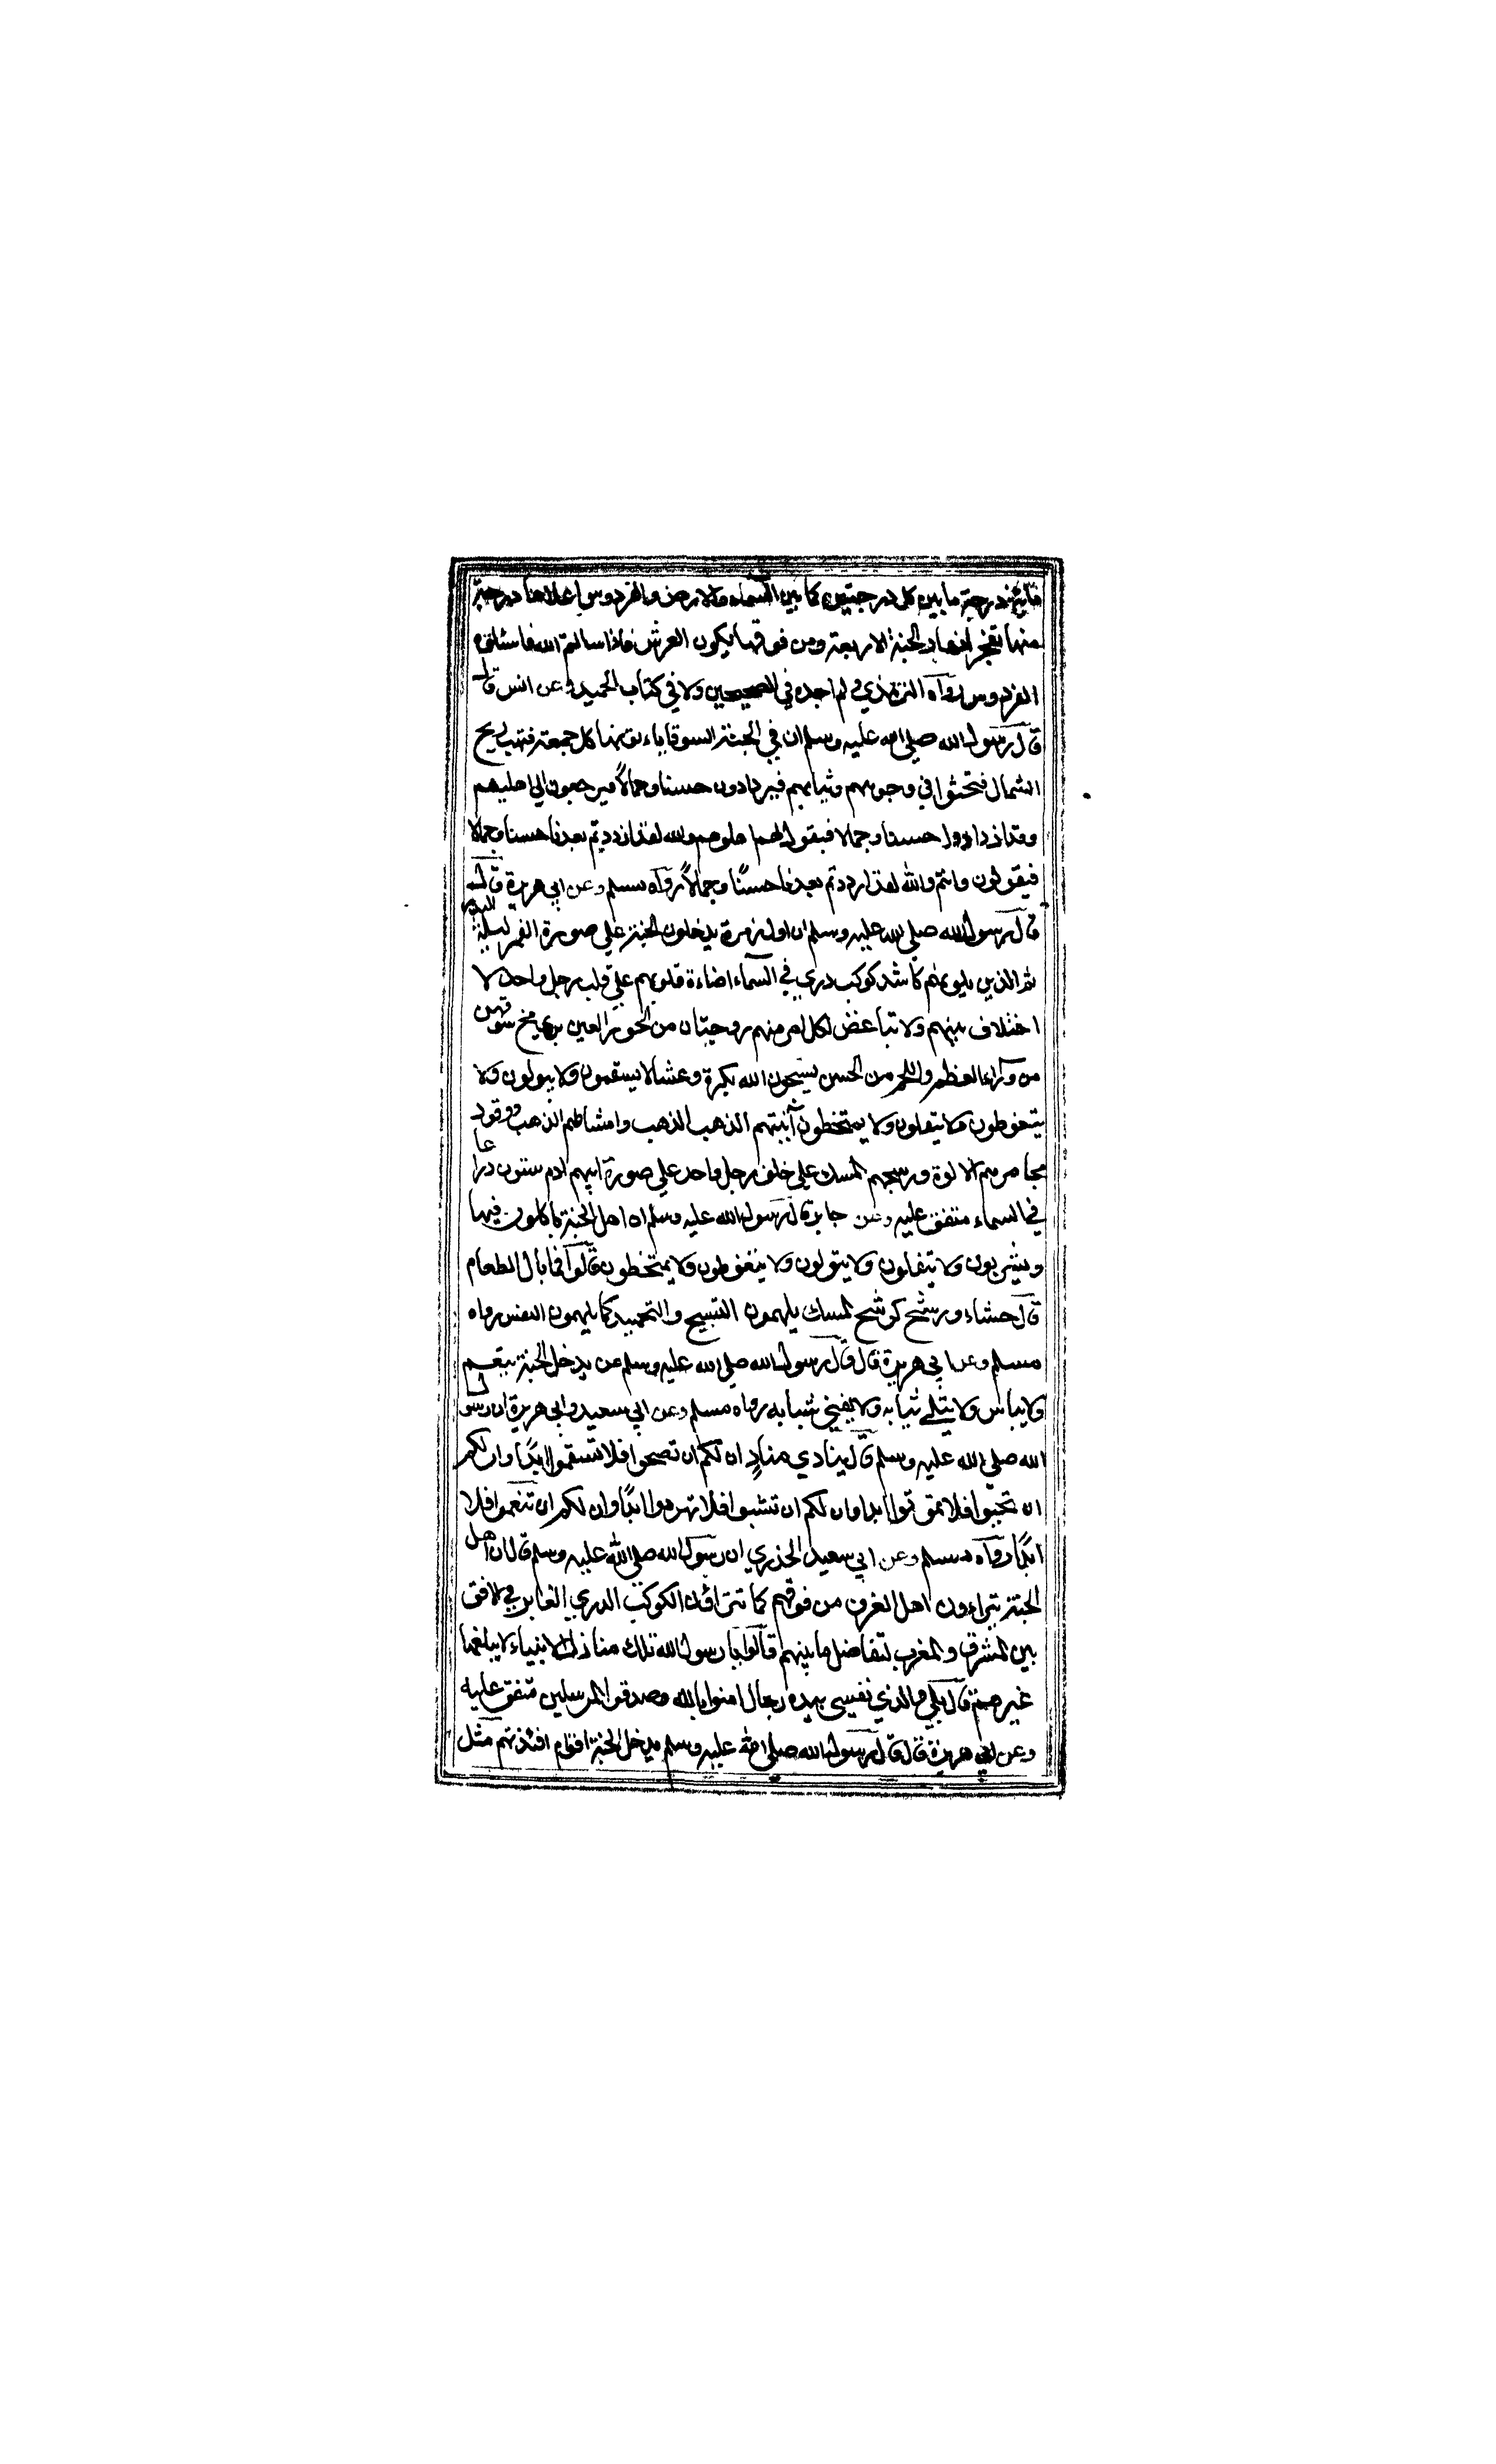 مائة درجة ما بين كل درجتين كما بين السماء والارض والفردوس اعلاها درجة
منها تفجر انهار الجنة الاربعة ومن فوقها يكون العرش فاذا سالتم الله فاسئلوه
الفردوس رواه الترمذي ولم اجده في الصحيحين ولا في كتاب الحميدي وعن انس قال
قال رسول الله صلى الله عليه وسلم ان في الجنة لسوقا ياءتونها كل جمعة فتهب ريح
الشمال فتحثوا في وجوههم وثيابهم فيزدادون حسنا وجمالا فيرجعون الي اهليهم
وقد ازدادوا حسنا وجمالا فيقول لهم اهلوهم والله لقد ازددتم بعدنا حسنا وجمالا
فيقولون وانتم والله لقد ازددتم بعدنا حسنًا وجمالاً رواه مسلم وعن ابي هريرة قال
قال رسول الله صلي الله عليه وسلم ان اول زمرة يدخلون الجنة علي صورة القمر ليلة البدر
ثم الذين يلونهم كاشد كوكب دري في السمآء اضاءة قلوبهم علي قلب رجل واحد لا
اختلاف بينهم ولا تباغض لكل امر منهم زوجتان من الحور العين يري مخ سوقهن
من ورآء العظم واللحم من الحسن يسبحون الله بكرة وعشيا لا يسقمون ولا يبولون ولا
يتغوطون ولا يتفلون ولا يمتخطون آنيتهم الذهب الذهب وامشاطهم الذهب ووقود
مجامرهم الالوة ورسحهم المسك علي خلق رجل واحد علي صورة ابيهم ادم ستون ذراعا
في السماء متفق عليه وعن جابر قال رسول الله عليه وسلم ان اهل الجنة ياكلون فيها
ويشربون ولا يتفلون ولا يبولون ولا يتغوطون ولا يمتخطون قالوا فما بال الطعام
قال جشاء ورشح كرشح المسك يلهمون التسبيح والتحميد كما يلهمون النفس رواه
مسلم وعن ابي هريرة قال قال رسول الله صلي الله عليه وسلم من يدخل الجنة ينعم
ولا يباس ولا يبلي ثيابه ولا يفني شبابه رواه مسلم وعن ابي سعيد وابي هريرة ان رسول
الله صلي الله عليه وسلم قال ينادي منادٍ ان لكم ان تصحوا فلا تسقموا ابدًا وان لكم
ان تحيوا فلا تموتوا ابدا وان لكم ان تشبوا فلا تهرموا ابدًا وان لكم ان تنعموا فلا
ابدًا رواه مسلم وعن ابي سعيد الخذري ان رسول الله صلي الله عليه وسلم قال ان اهل
الجنة يتراءون اهل الغرف من فوقهم كما تتراؤن الكوكب الدري الغابر في الافق
بين المشرق والمغرب لتفاضل ما بينهم قالوا يا رسول الله تلك منازل الانبياء لا يبلغها
غيرهم قال بلي والذي نفسي بيده رجال امنوا بالله وصدقوا المرسلين متفق عليه
وعن ابي هريرة قال قال رسول الله صلي الله عليه وسلم يدخل الجنة اقوام افئذتهم مثل